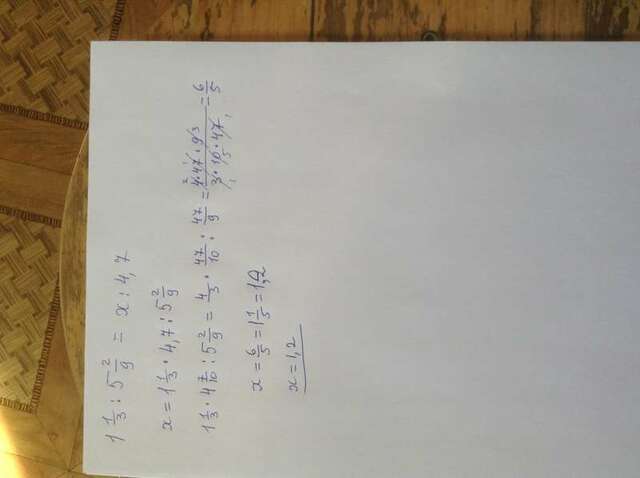 1 1/3 : 5 2/9 = x : 4,7
x = 1 1/3 · 4,7 : 5 2/9
1 1/3 · 4 7/10 : 5 2/9 = 4/3 · 47/10 : 47/9 = 4·47·9/3·10·47 = 6/5
x = 6/5 = 1 1/5 = 1,2
x = 1,2